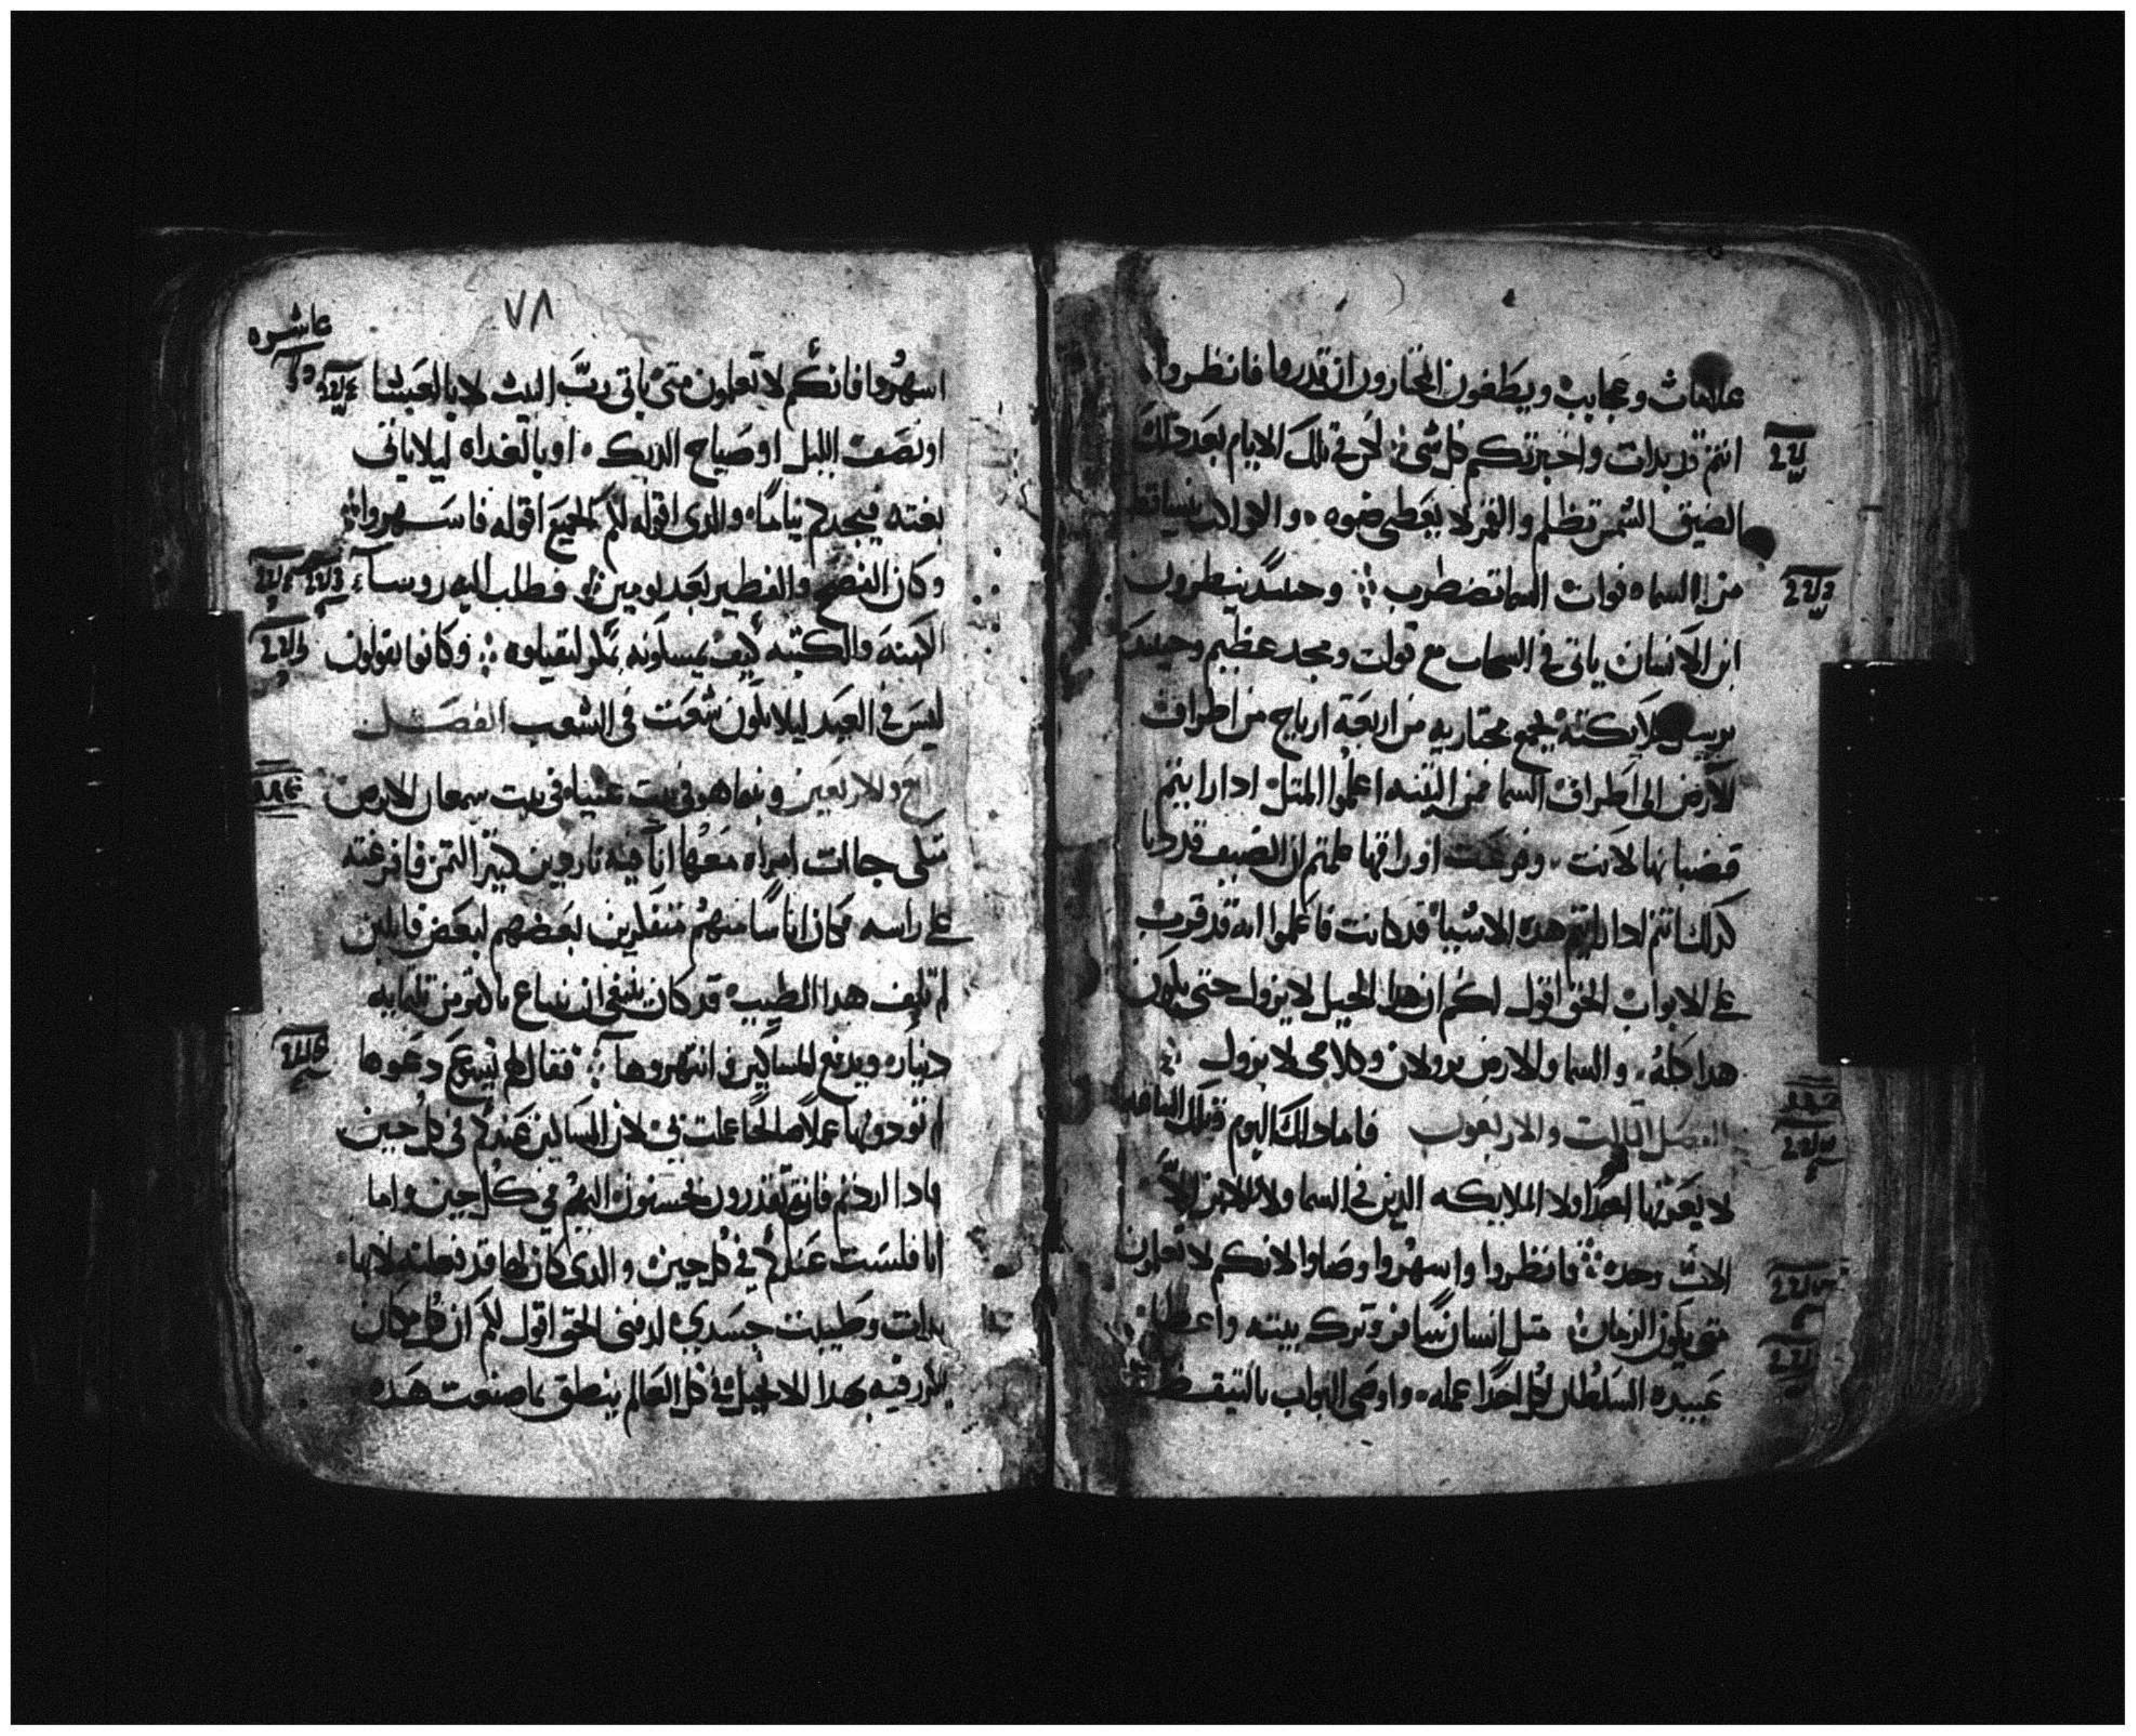 علامات وعجايب ويطغون المختارون ان قدروا فانظروا
انتم قد بدات واخبرتكم كل شى لكن فى تلك الايام بعد دلك
الضيق الشمس تظلم والقمر لا يعطى ضوه والكواكب تتساقط
من السما وقوات السما تضطرب وحينيد ينظرون
ابن الانسان ياتى فى السحاب مع قوات ومجد عظيم وحينيد
يرسل ملايكته يجمع مختاريه من اربعة ارياح من اطراف
الارض الى اطراف السما فمن التينه اعلموا المتل ادا رايتم
قضبانها لانت وفرعت اوراقها علمتم ان الصيف قد دنا
كدلك انتم ادا رايتم هده الاشيا قد كانت فاعلموا انه قد قرب
على الابواب الحق اقول لكم ان هدا الجيل لا يزول حتى يكون
هدا كله والسما والارض يزولان وكلامى لا يزول
الفصل التالت والاربعون فاما دلك اليوم وتلك الساعه
لا يعرفها احدا ولا الملايكه الدين فى السما ولا الابن الا
الاب وحده فانظروا واسهروا وصلوا لانكم لا تعلمون
متى يكون الزمان متل انسان سافر وترك بيته واعطا
عبيده السلطان لكل احدا عمله واوصى البواب بالتيقظ
٧٨
عاشره
اسهروا فانكم لا تعلمون متى ياتى رب البيت لا بالعشا
او نصف الليل او صياح الديك او بالغداه ليلا ياتى
بغته فيجدكم نياما والدى اقوله لكم للجميع اقوله فاسهروا
وكان الفصح والفطير بعد يومين فطلب اليه روسا
الكهنه والكتبه كيف يمسكونه بمكر ليقتلوه وكانوا يقولون
ليس فى العيد ليلا يكون شعت فى الشعب الفصل
والاربعين وبنما هو فى بيت عنيا فى بيت سمعان الابرص
متكى جاات امراه معها انا فيه ناردين كتير التمن فافرغته
على راسه وكان اناسا منهم متقلقين بعضهم لبعض قايلين
لم تلف هدا الطيب قد كان ينبغى ان يباع باكتر من تلتمايه
دينار ويدفع للمساكين وانتهروها فقال لهم يسوع دعوها
لم تودونها عملا صالحا عملت بى لان المساكين عندكم فى كل حين
وادا اردتم فانتم تقدرون تحسنون اليهم فى كل حين واما
انا فلست عندكم فى كل حين والدى كان لها قد فعلته لانها
بدات وطيبت جسدي لدفنى الحق اقول لكم ان كل مكان
يكرز فيه بهدا الانجيل فى كل العالم ينطق بما صنعت هده